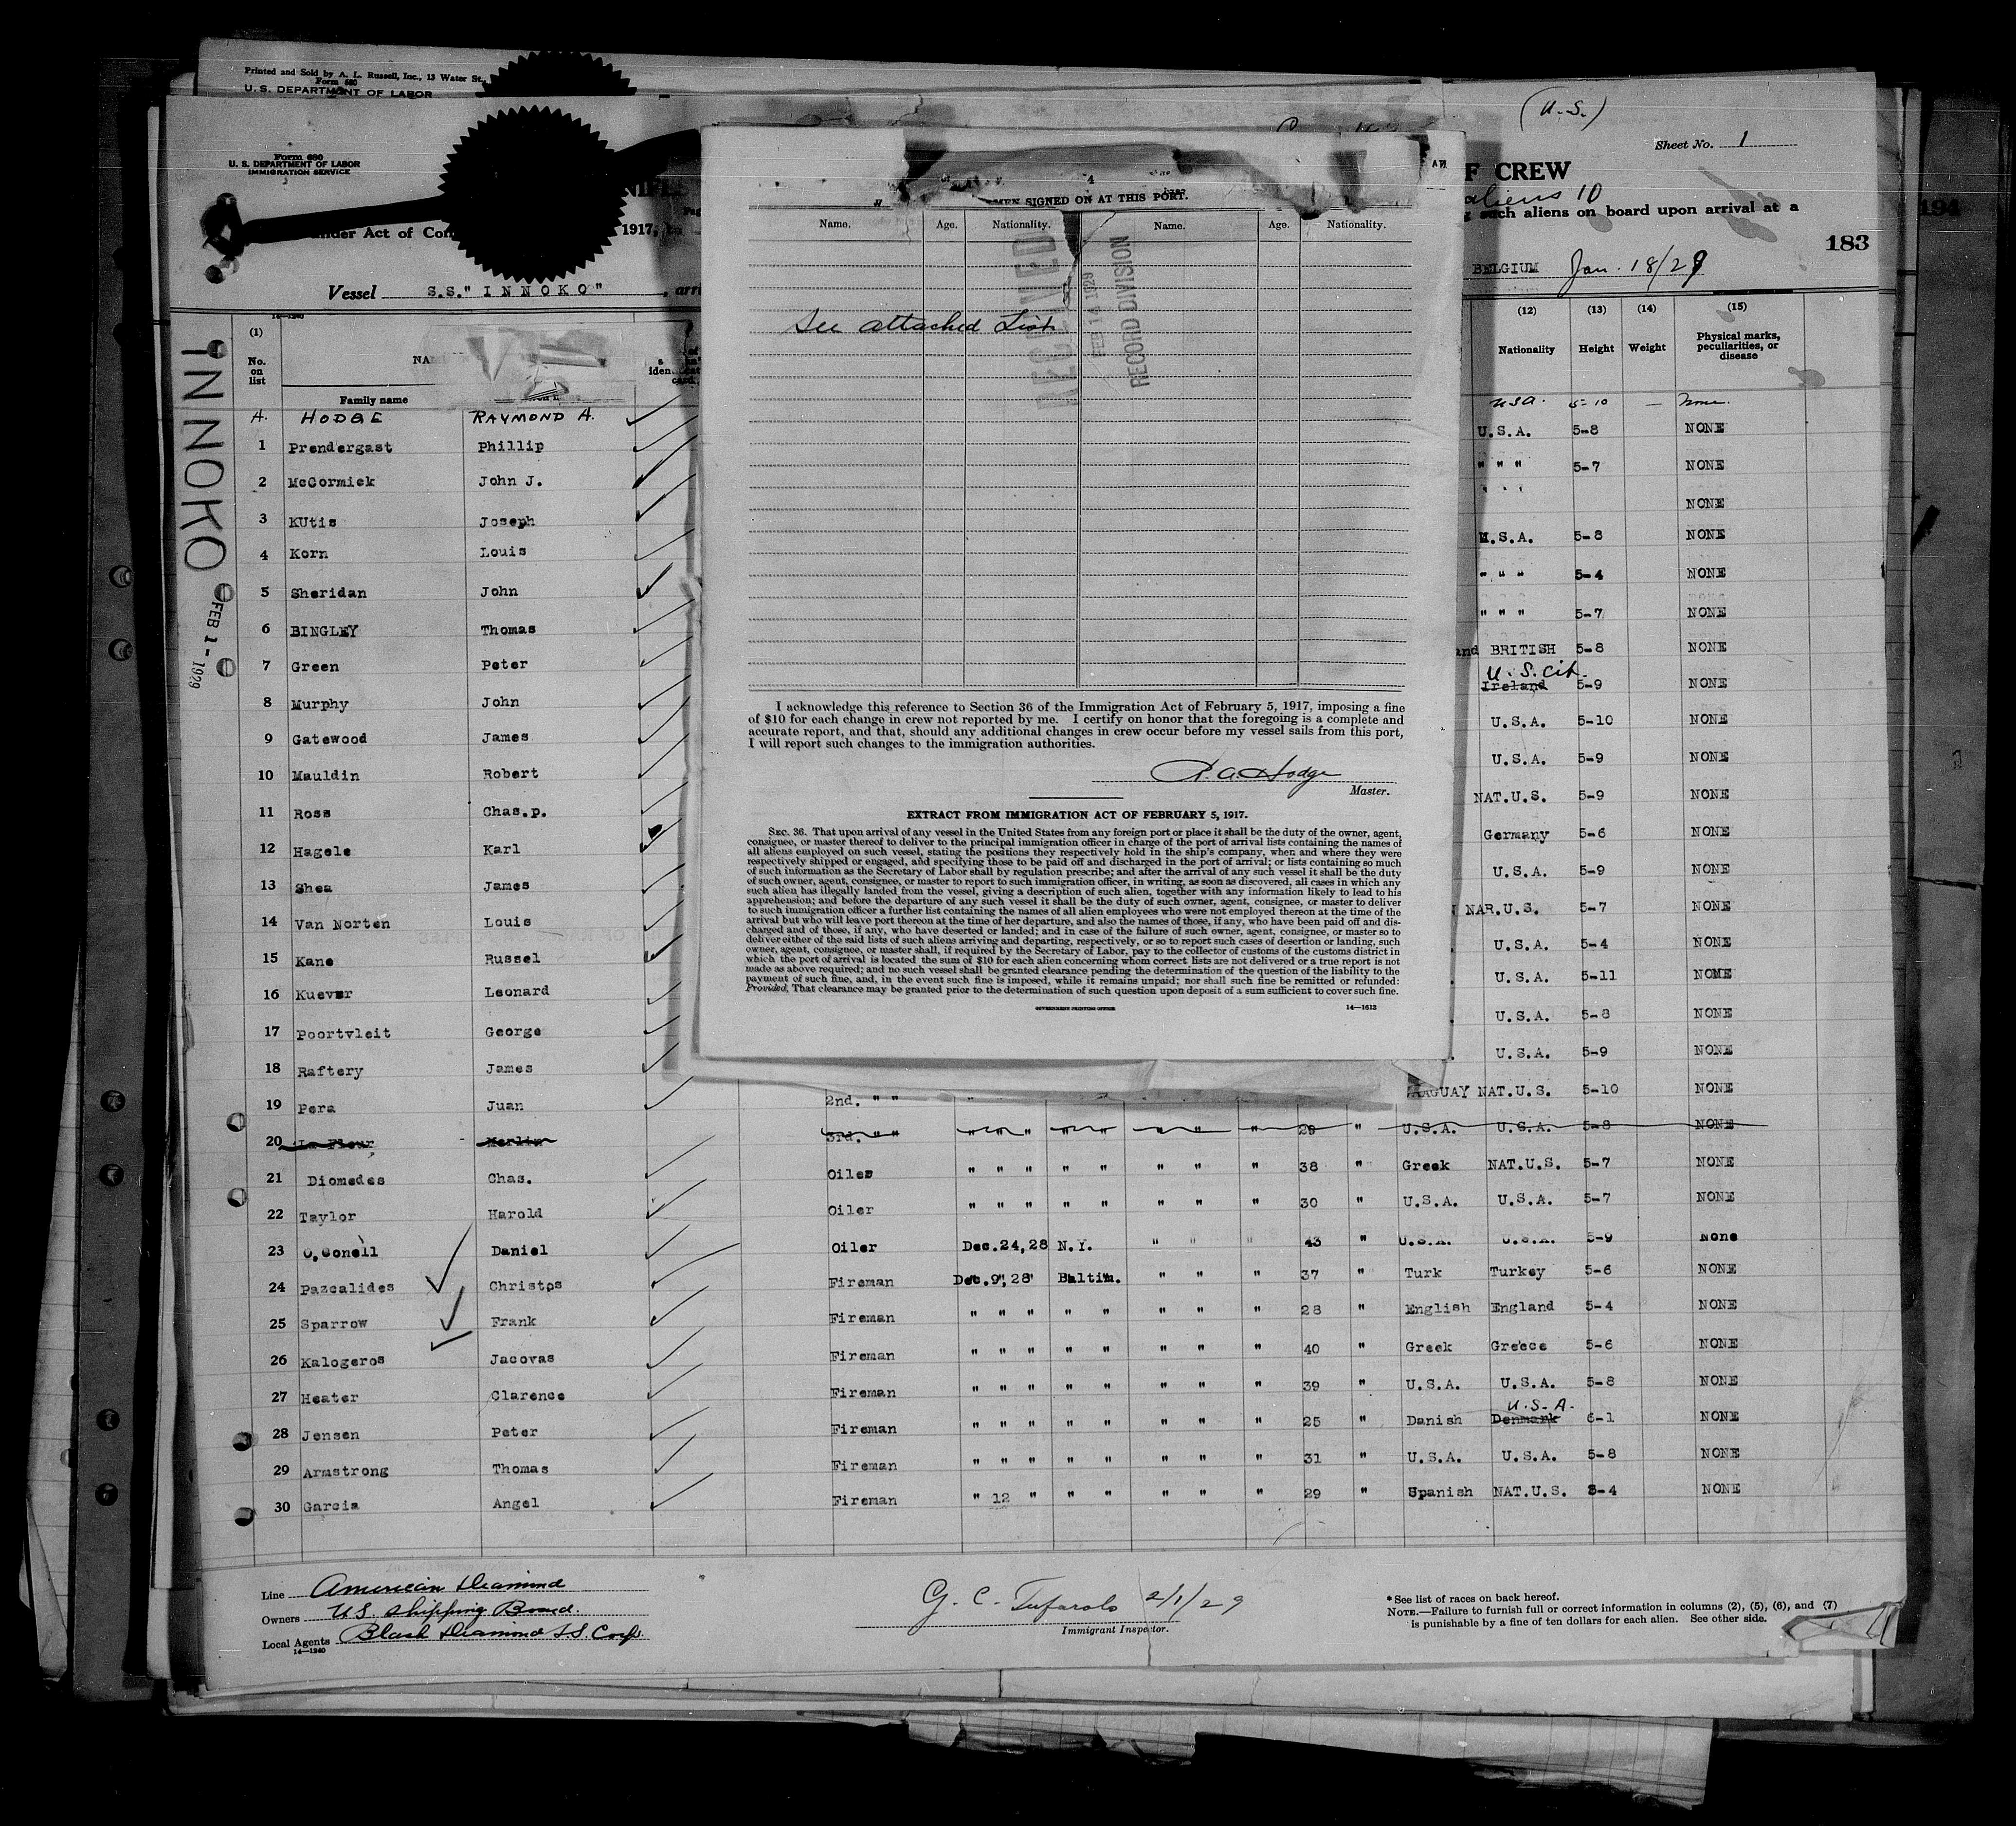 Printed and Sold by A. L. Russell, Inc., 13 Water St.,
Form 680
U. S. DEPARTMENT OF LABOR
Form 680
U. S. DEPARTMENT OF LABOR
IMMIGRATION SERVICE
(U.S.)
Sheet No. 1
F CREW
aliens 10
such aliens on board upon arrival at a
194
183
nder Act of Con 1917, to
BELGIUM Jan. 18/29
Vessel S.S." I N N O K O" , arri
14—1240
INNOKO
FEB 1 - 1929
(1) (12) (13) (14) (15)
No. on list
Family name
Nationality Height Weight Physical marks, peculiarities, or disease
A. HODGE RAYMOND A. USA. 5-10 — None.
1 Prendergast Phillip U.S.A. 5-8 NONE
2 McCormick John J. " " " 5-7 NONE
3 KUtis Joseph " " " NONE
4 Korn Louis U.S.A. 5-8 NONE
5 Sheridan John " " " 5-4 NONE
6 BINGLEY Thomas " " " 5-7 NONE
7 Green Peter and BRITISH 5-8 NONE
8 Murphy John U.S. cit. Ireland 5-9 NONE
9 Gatewood James U.S.A. 5-10 NONE
10 Mauldin Robert U.S.A. 5-9 NONE
11 Ross Chas.p. NAT.U.S. 5-9 NONE
12 Hagele Karl Germany 5-6 NONE
13 Shea James U.S.A. 5-9 NONE
14 Van Norten Louis NAR.U.S. 5-7 NONE
15 Kane Russel U.S.A. 5-4 NONE
16 Kuever Leonard U.S.A. 5-11 NOME
17 Poortvleit George U.S.A. 5-8 NONE
18 Raftery James U.S.A. 5-9 NONE
19 Pera Juan 2nd. " " AGUAY NAT.U.S. 5-10 NONE
20 La Fleur Merlin 3rd. " " " " " " " " " " 29 " U.S.A. U.S.A. 5-8 NONE
21 Diomedes Chas. Oiles " " " " " " " " 38 " Greek NAT.U.S. 5-7 NONE
22 Taylor Harold Oiler " " " " " " " " 30 " U.S.A. U.S.A. 5-7 NONE
23 O,Conell Daniel Oiler Dec.24,28 N.Y. " " " 43 " U.S.A. U.S.A. 5-9 None
24 Pazcalides Christos Fireman Dec.9",28" Baltim. " " " 37 " Turk Turkey 5-6 NONE
25 Sparrow Frank Fireman " " " " " " " " 28 " English England 5-4 NONE
26 Kalogeros Jacovas Fireman " " " " " " " " 40 " Greek Greece 5-6 NONE
27 Heater Clarence Fireman " " " " " " " " 39 " U.S.A. U.S.A. 5-8 NONE
28 Jensen Peter Fireman " " " " " " " " 25 " Danish Denmark U.S.A. 6-1 NONE
29 Armstrong Thomas Fireman " " " " " " " " 31 " U.S.A. U.S.A. 5-8 NONE
30 Garcia Angel Fireman " 12 " " " " " " 29 " Spanish NAT.U.S. 5-4 NONE
Line American Diamond
Owners U.S. Shipping Board.
Local Agents Black Diamond S.S. Corp.
14—1240
G. C. Tufarolo 2/1/29
Immigrant Inspector.
* See list of races on back hereof.
NOTE.—Failure to furnish full or correct information in columns (2), (5), (6), and (7)
is punishable by a fine of ten dollars for each alien. See other side.
4
SIGNED ON AT THIS PORT.
Name. Age. Nationality. Name. Age. Nationality.
RECEIVED
FEB 14 1929
RECORD DIVISION
See attached List
I acknowledge this reference to Section 36 of the Immigration Act of February 5, 1917, imposing a fine
of $10 for each change in crew not reported by me. I certify on honor that the foregoing is a complete and
accurate report, and that, should any additional changes in crew occur before my vessel sails from this port,
I will report such changes to the immigration authorities.
R. A. Hodge
Master.
EXTRACT FROM IMMIGRATION ACT OF FEBRUARY 5, 1917.
SEC. 36. That upon arrival of any vessel in the United States from any foreign port or place it shall be the duty of the owner, agent,
consignee, or master thereof to deliver to the principal immigration officer in charge of the port of arrival lists containing the names of
all aliens employed on such vessel, stating the positions they respectively hold in the ship's company, when and where they were
respectively shipped or engaged, and specifying those to be paid off and discharged in the port of arrival; or lists containing so much
of such information as the Secretary of Labor shall by regulation prescribe; and after the arrival of any such vessel it shall be the duty
of such owner, agent, consignee, or master to report to such immigration officer, in writing, as soon as discovered, all cases in which any
such alien has illegally landed from the vessel, giving a description of such alien, together with any information likely to lead to his
apprehension; and before the departure of any such vessel it shall be the duty of such owner, agent, consignee, or master to deliver
to such immigration officer a further list containing the names of all alien employees who were not employed thereon at the time of the
arrival but who will leave port thereon at the time of her departure, and also the names of those, if any, who have been paid off and dis-
charged and of those, if any, who have deserted or landed; and in case of the failure of such owner, agent, consignee, or master so to
deliver either of the said lists of such aliens arriving and departing, respectively, or so to report such cases of desertion or landing, such
owner, agent, consignee, or master shall, if required by the Secretary of Labor, pay to the collector of customs of the customs district in
which the port of arrival is located the sum of $10 for each alien concerning whom correct lists are not delivered or a true report is not
made as above required; and no such vessel shall be granted clearance pending the determination of the question of the liability to the
payment of such fine, and, in the event such fine is imposed, while it remains unpaid; nor shall such fine be remitted or refunded:
Provided, That clearance may be granted prior to the determination of such question upon deposit of a sum sufficient to cover such fine.
GOVERNMENT PRINTING OFFICE 14—1612